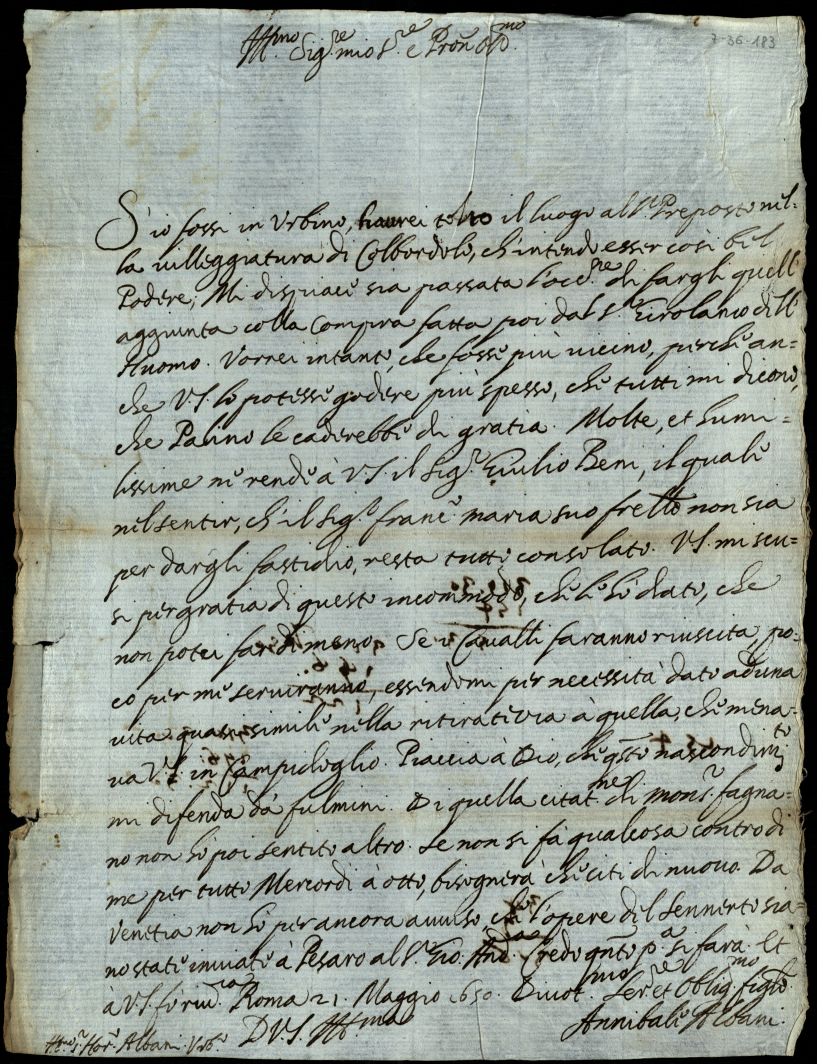 7-36-183
Ill.mo Sig.re mio S.re e Pron Oss.mo
S'io fossi in Urbino, haurei tolto il luogo al S.r Preposto nel-
la uilleggiatura di Colbordolo, ch'intendo esser così bel
Podere; Mi dispiace sia passata l'occ.ne di fargli quell'
aggiunta colla Compra fatta poi dal S.r Girolamo dell'
Huomo. Vorrei intanto, che fosse più uicino, perche an=
che VS. lo potesse godere più spesso, che tutti mi dicono,
che Palino le caderebbe di gratia. Molte, et humi=
lissime ne rende à VS. il Sig.r Giulio Beni, il quale
nel sentir, ch'il Sig.r Franc.o Maria suo frello non sia
per dargli fastidio, resta tutto consolato. VS. mi scu=
si per gratia di questo incommodo, che le hò dato, che
non potei far di meno. Se i Caualli faranno riuscita, po=
co per me seruiranno, essendomi per necessità dato ad una
uita quasi simile nella ritiratezza à quella, che mena=
ua VS. in Campidoglio. Piaccia à Dio, che q.sto nascondim.to
mi difenda da fulmini. Di quella citat.ne di Mons.r Fagna=
no non hò poi sentito altro. Se non si fà qualcosa contro di
me per tutto Mercordì a otto, bisognerà che citi di nuouo. Da
Venetia non hò per ancora auuiso che l'opere del Sennerto sia=
no state inuiate à Pesaro al S.r Gio. And. Credo q.nto p.a si farà. Et
à VS. fo riu.za Roma 21 Maggio 650. Diuot.mo Ser.re et Oblig.mo figlio
D VS. Ill.ma
Annibale Albani.
S.r Hor.o Albani. Urb.o